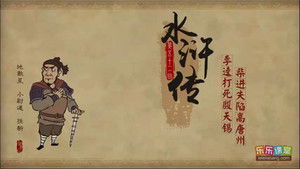 水浒传
李逵打死殷天锡
柴进失陷高唐州
地数星
小尉迟 孙新
乐乐课堂
leleketang.com